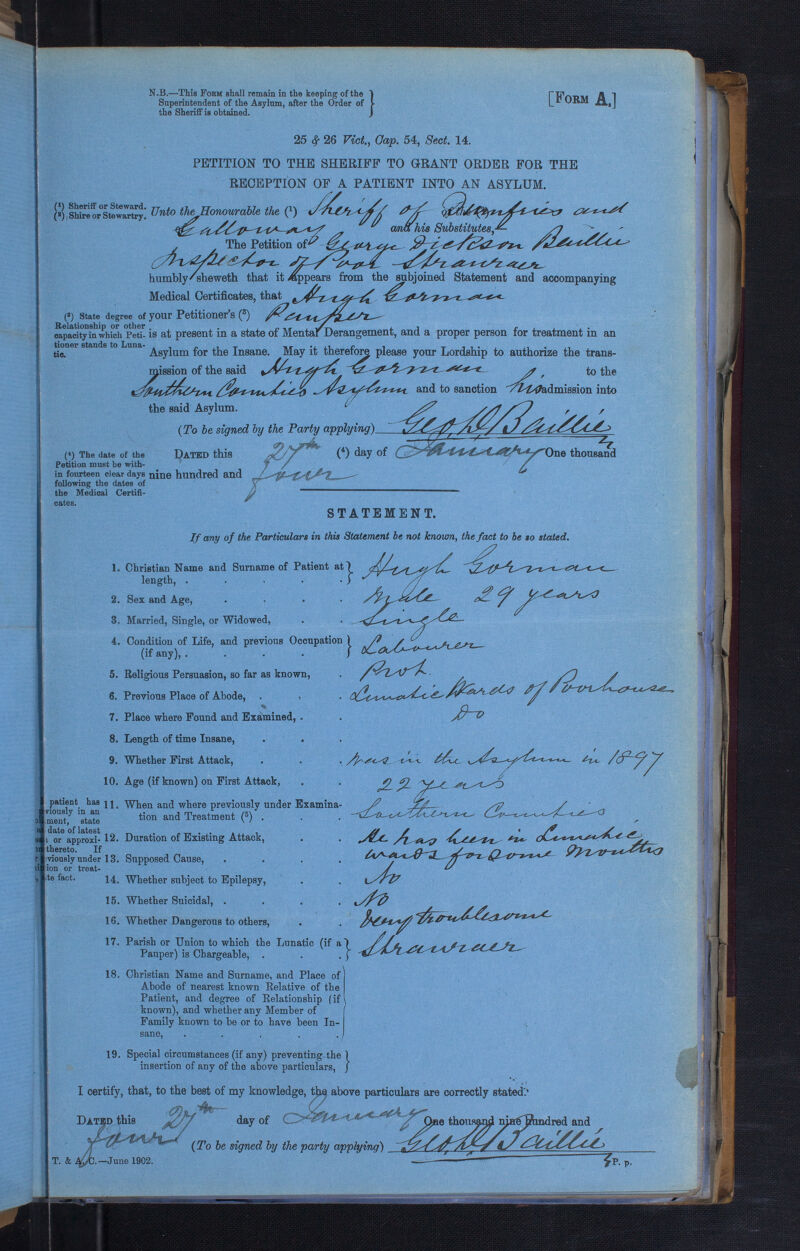 N.B.—This FORM shall remain in the keeping of the
Superintendent of the Asylum, after the Order of
the Sheriff is obtained.
[FORM A.]
25 & 26 Vict., Cap. 54, Sect. 14.
PETITION TO THE SHERIFF TO GRANT ORDER FOR THE
RECEPTION OF A PATIENT INTO AN ASYLUM.
(¹) Sheriff or Steward.
(²) Shire or Stewartry.
Unto the Honourable the (¹) Sheriff of Dumfries and
Galloway and his Substitutes,
The Petition of George Dickson Baillie
Inspector of Poor Stranraer
humbly sheweth that it appears from the subjoined Statement and accompanying
Medical Certificates, that Hugh Gorman
(³) State degree of
Relationship or other
capacity in which Peti-
tioner stands to Luna-
tic.
your Petitioner's (³) Pauper
is at present in a state of Mental Derangement, and a proper person for treatment in an
Asylum for the Insane. May it therefore please your Lordship to authorize the trans-
mission of the said Hugh Gorman to the
Southern Counties Asylum and to sanction his admission into
the said Asylum.
(To be signed by the Party applying) Geo. D. Baillie
(⁴) The date of the
Petition must be with-
in fourteen clear days
following the dates of
the Medical Certifi-
cates.
DATED this 27th (⁴) day of January One thousand
nine hundred and four
STATEMENT.
If any of the Particulars in this Statement be not known, the fact to be so stated.
1. Christian Name and Surname of Patient at length, . . . . . Hugh Gorman
2. Sex and Age, . . . . Male 29 years
3. Married, Single, or Widowed, . . Single
4. Condition of Life, and previous Occupation (if any), . . . . . Labourer
5. Religious Persuasion, so far as known, . Prot.
6. Previous Place of Abode, . . . Lunatic Wards of Poorhouse
7. Place where Found and Examined, . . Do
8. Length of time Insane, . . .
9. Whether First Attack, . . . Was in the Asylum in 1897
10. Age (if known) on First Attack, . . 22 years
patient has
viously in an
ment, state
date of latest
or approxi-
thereto. If
viously under
ion or treat-
te fact.
11. When and where previously under Examina-
tion and Treatment (⁵) . . . Southern Counties
12. Duration of Existing Attack, . . He has been in Lunatic
13. Supposed Cause, . . . . wards for some Months
14. Whether subject to Epilepsy, . . No
15. Whether Suicidal, . . . . No
16. Whether Dangerous to others, . . Very troublesome
17. Parish or Union to which the Lunatic (if a
Pauper) is Chargeable, . . . Stranraer
18. Christian Name and Surname, and Place of
Abode of nearest known Relative of the
Patient, and degree of Relationship (if
known), and whether any Member of
Family known to be or to have been In-
sane, . . . . . .
19. Special circumstances (if any) preventing the
insertion of any of the above particulars,
I certify, that, to the best of my knowledge, the above particulars are correctly stated.
DATED this 27th day of January One thousand nine hundred and
four (To be signed by the party applying) Geo. D. Baillie
T. & A. C.—June 1902.
P. p.